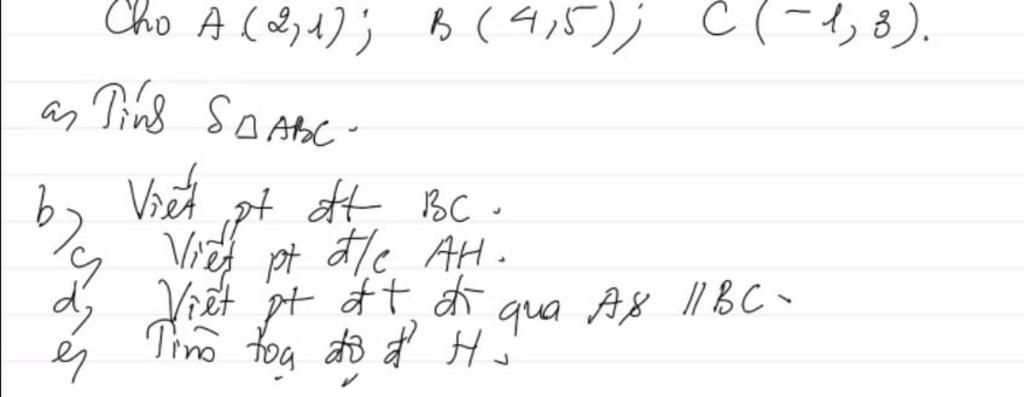 Cho A(2,1); B(4,5); C(-1,3).
a, Tính S△ABC.
b, Viết pt đt BC.
c, Viết pt đ/c AH.
d, Viết pt đt đi qua A & // BC.
e, Tìm toạ độ đ' H.